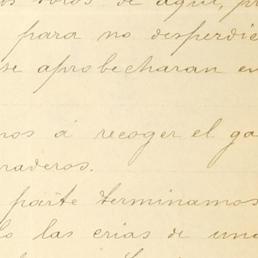 de aquí, pr
para no desperdic
se aprobecharan en
nos á recoger el ga
raderos.
parte terminamos
lo las crias de una